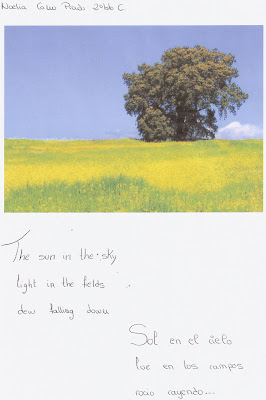 Noelia Calvo Prado 2º bto C.
The sun in the sky
light in the fields
dew falling down
Sol en el cielo
luz en los campos
rocio cayendo...